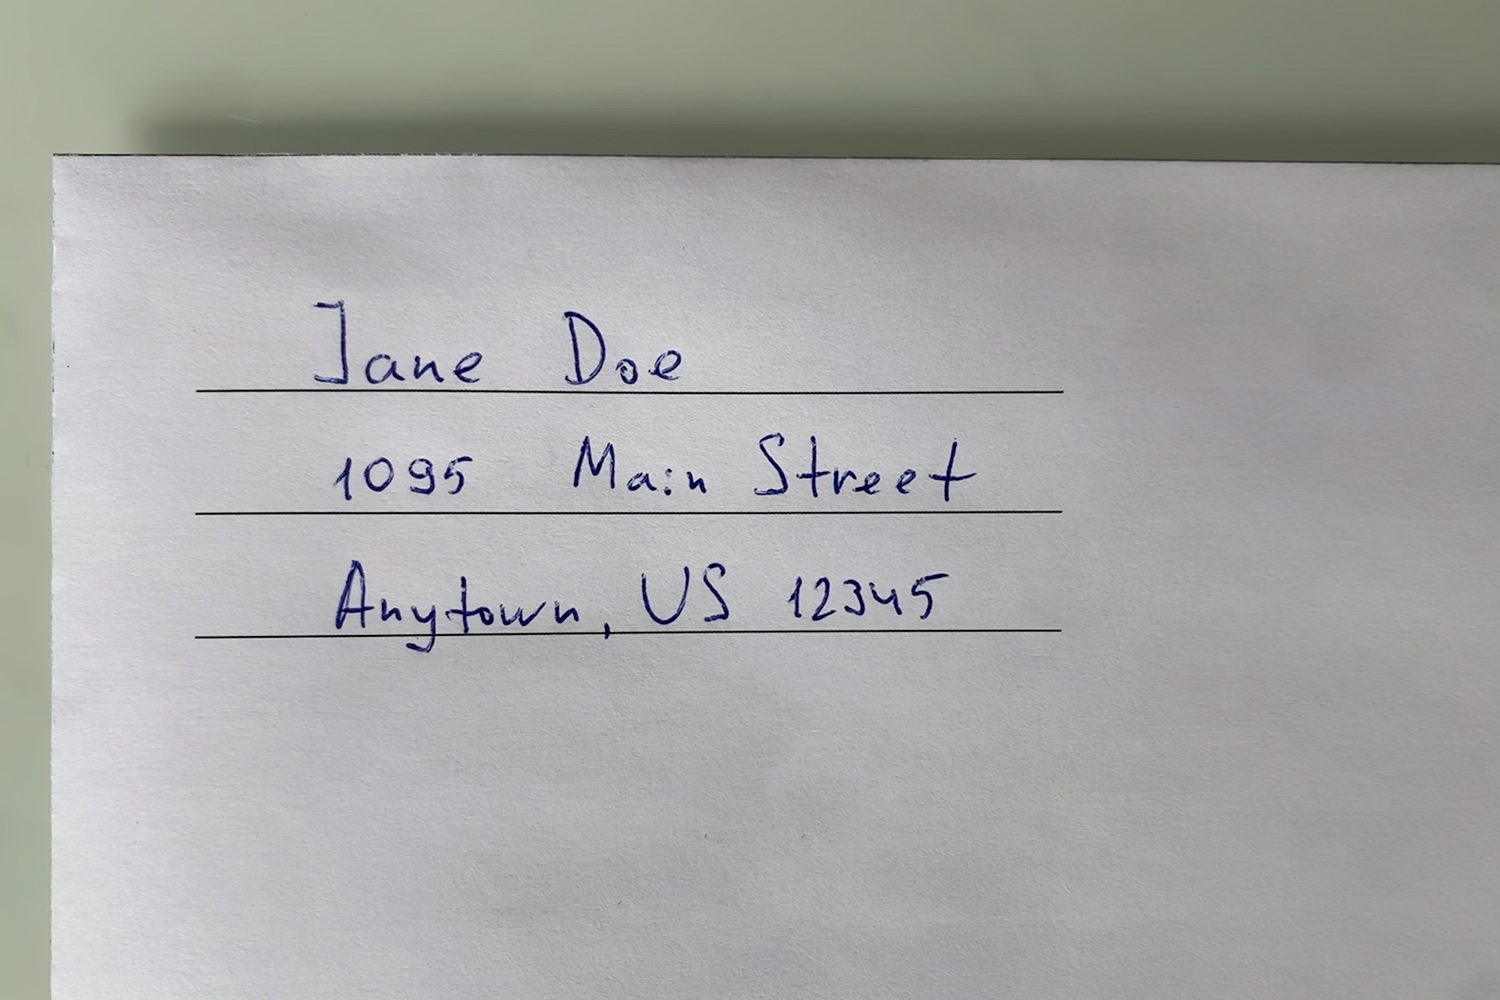 Jane Doe
1095 Main Street
Anytown, US 12345